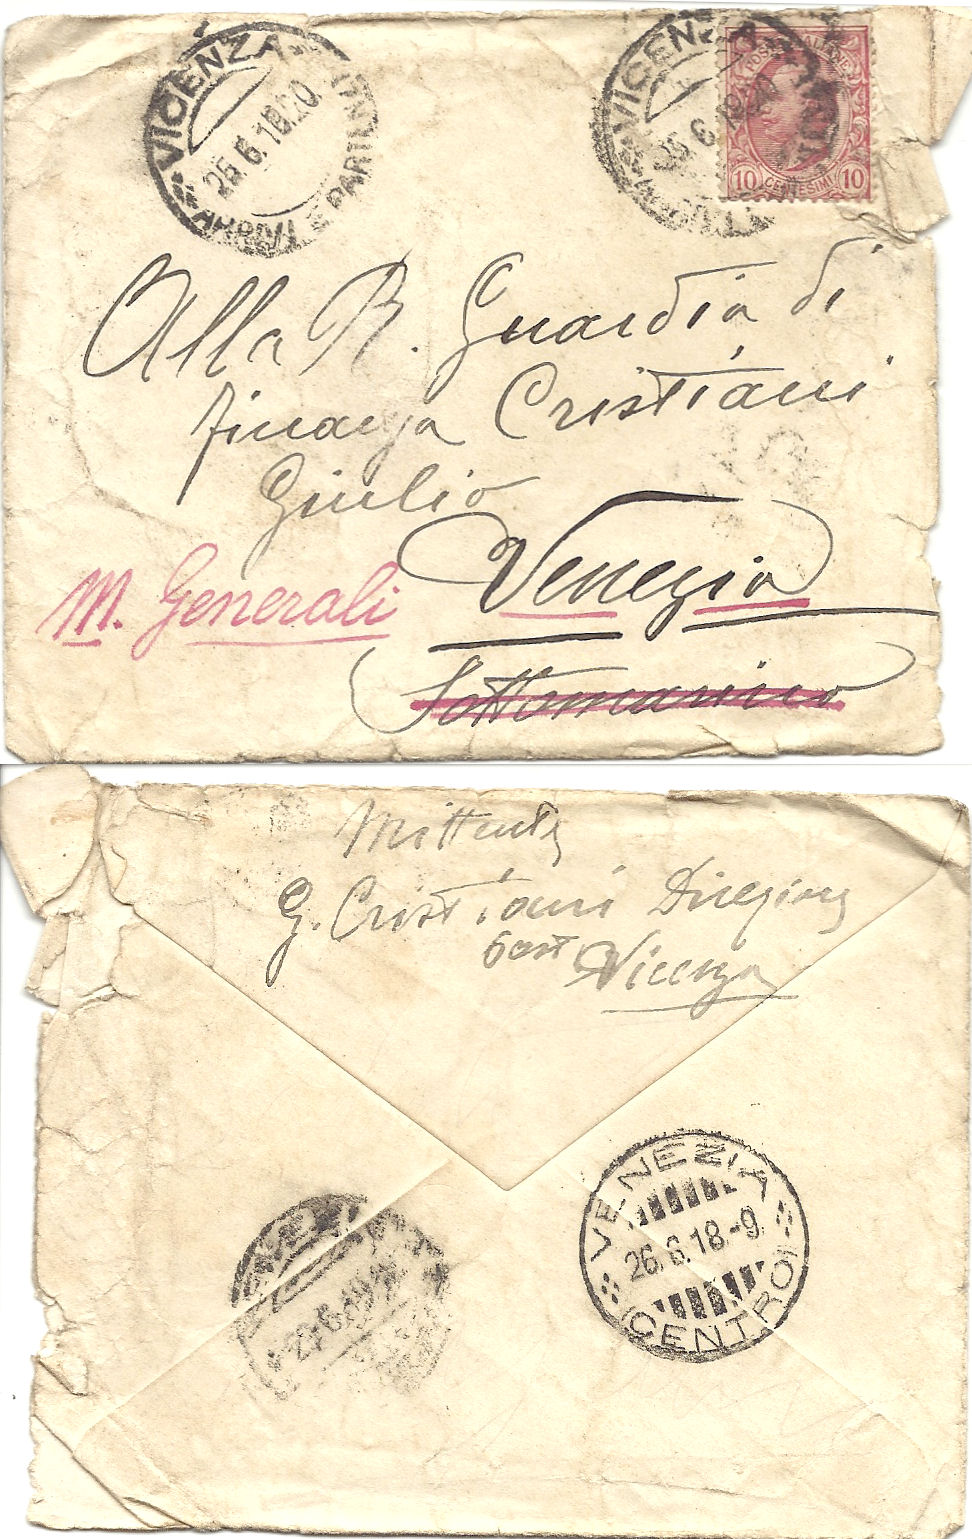 VICENZA
25.6.18.20
ARRIVI E PARTENZE
VICENZA
POSTE ITALIANE
10 CENTESIMI 10
Alla R. Guardia di
finanza Cristiani
Giulio
Venezia
M. Generali
Sottomarino
Mittente
G. Cristiani Direzione
Post
Vicenza
VENEZIA
26.6.18.-9
(CENTRO)